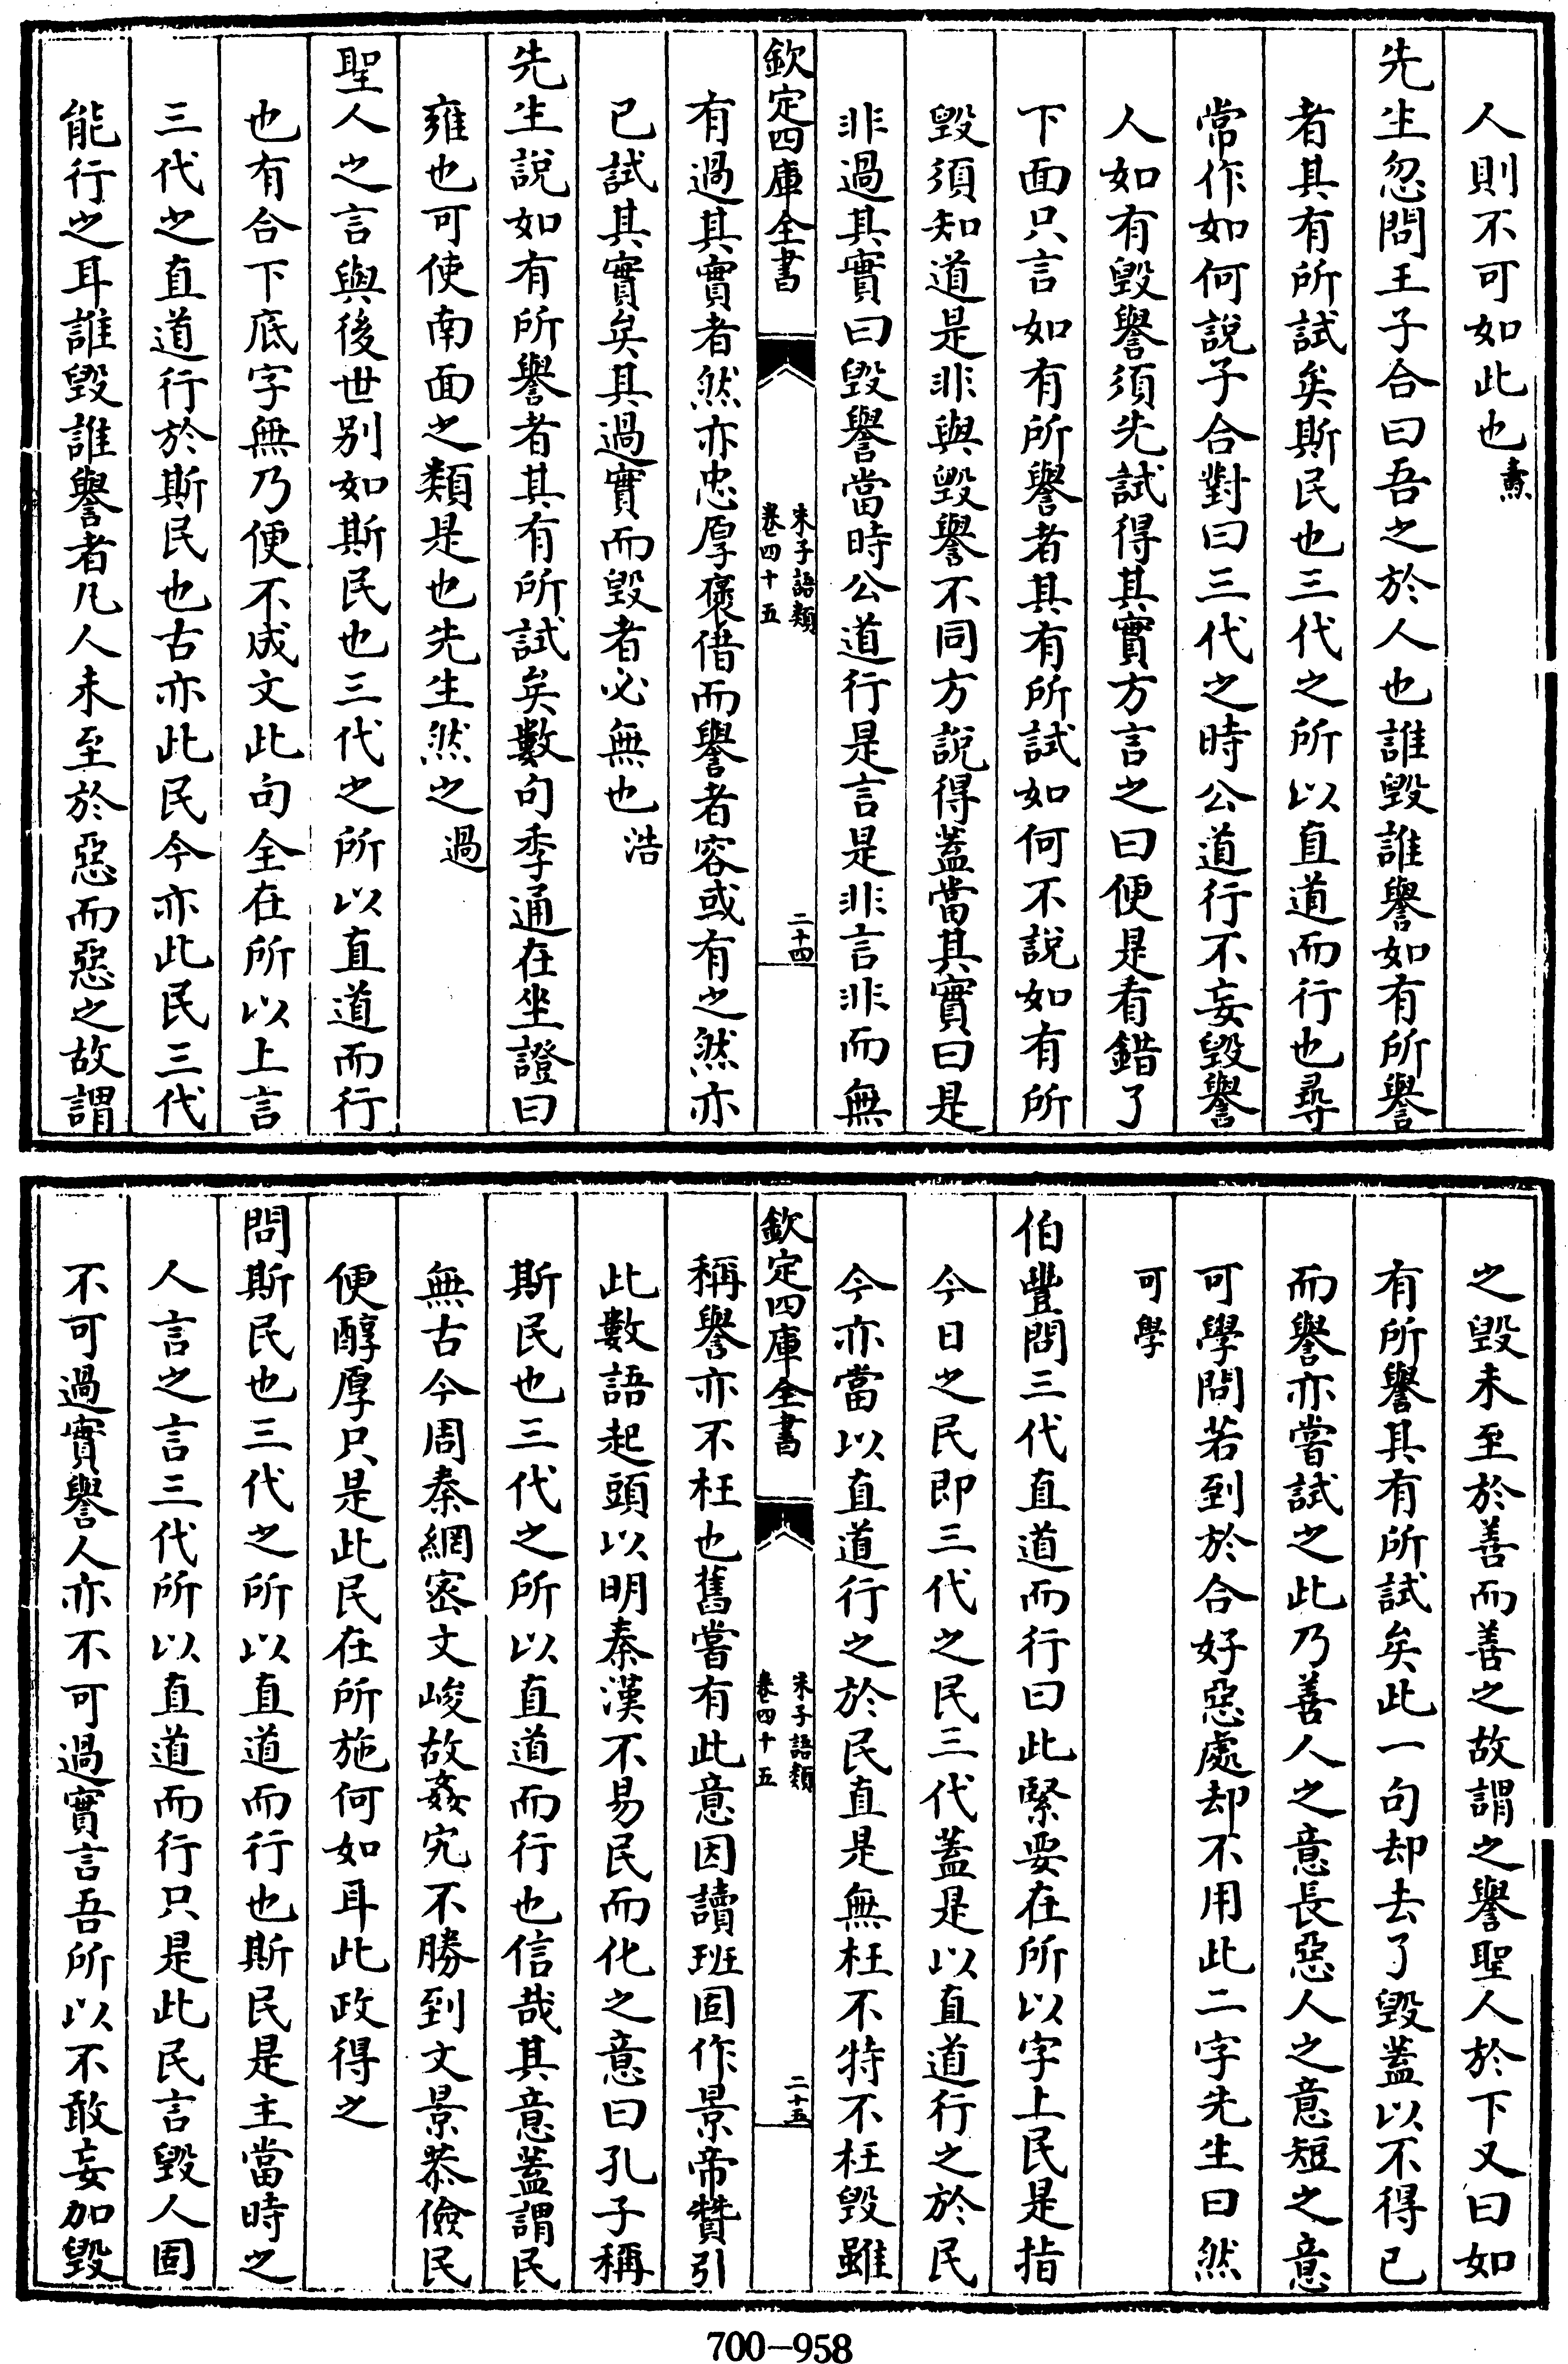 人則不可如此也燾
先生忽問王子合曰吾之於人也誰毀誰譽如有所譽
者其有所試矣斯民也三代之所以直道而行也尋
常作如何說子合對曰三代之時公道行不妄毀譽
人如有毀譽須先試得其實方言之曰便是看錯了
下面只言如有所譽者其有所試如何不說如有所
毀須知道是非與毀譽不同方說得蓋當其實曰是
非過其實曰毀譽當時公道行是言是非言非而無
欽定四庫全書
朱子語類
卷四十五
二十四
有過其實者然亦忠厚褒借而譽者容或有之然亦
已試其實矣其過實而毀者必無也浩
先生說如有所譽者其有所試矣數句季通在坐證曰
雍也可使南面之類是也先生然之過
聖人之言與後世别如斯民也三代之所以直道而行
也有合下底字無乃便不成文此句全在所以上言
三代之直道行於斯民也古亦此民今亦此民三代
能行之耳誰毀誰譽者凡人未至於惡而惡之故謂
之毀未至於善而善之故謂之譽聖人於下又曰如
有所譽其有所試矣此一句却去了毀蓋以不得已
而譽亦嘗試之此乃善人之意長惡人之意短之意
可學問若到於合好惡處却不用此二字先生曰然
可學
伯豐問三代直道而行曰此緊要在所以字上民是指
今日之民即三代之民三代蓋是以直道行之於民
今亦當以直道行之於民直是無枉不特不枉毀雖
欽定四庫全書
朱子語類
卷四十五
二十五
稱譽亦不枉也舊嘗有此意因讀班固作景帝贊引
此數語起頭以明秦漢不易民而化之意曰孔子稱
斯民也三代之所以直道而行也信哉其意蓋謂民
無古今周秦網密文峻故姦宄不勝到文景恭儉民
便醇厚只是此民在所施何如耳此政得之
問斯民也三代之所以直道而行也斯民是主當時之
人言之言三代所以直道而行只是此民言毀人固
不可過實譽人亦不可過實言吾所以不敢妄加毀
700-958